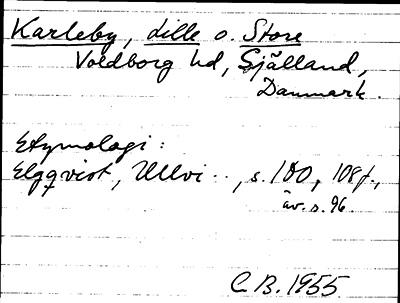 Karleby, Lille o. Store
Voldborg hd, Själland,
Danmark.
Etymologi:
Elgqvist, Ullvi.., s. 100, 108f.,
äv. s. 96.
C B. 1955